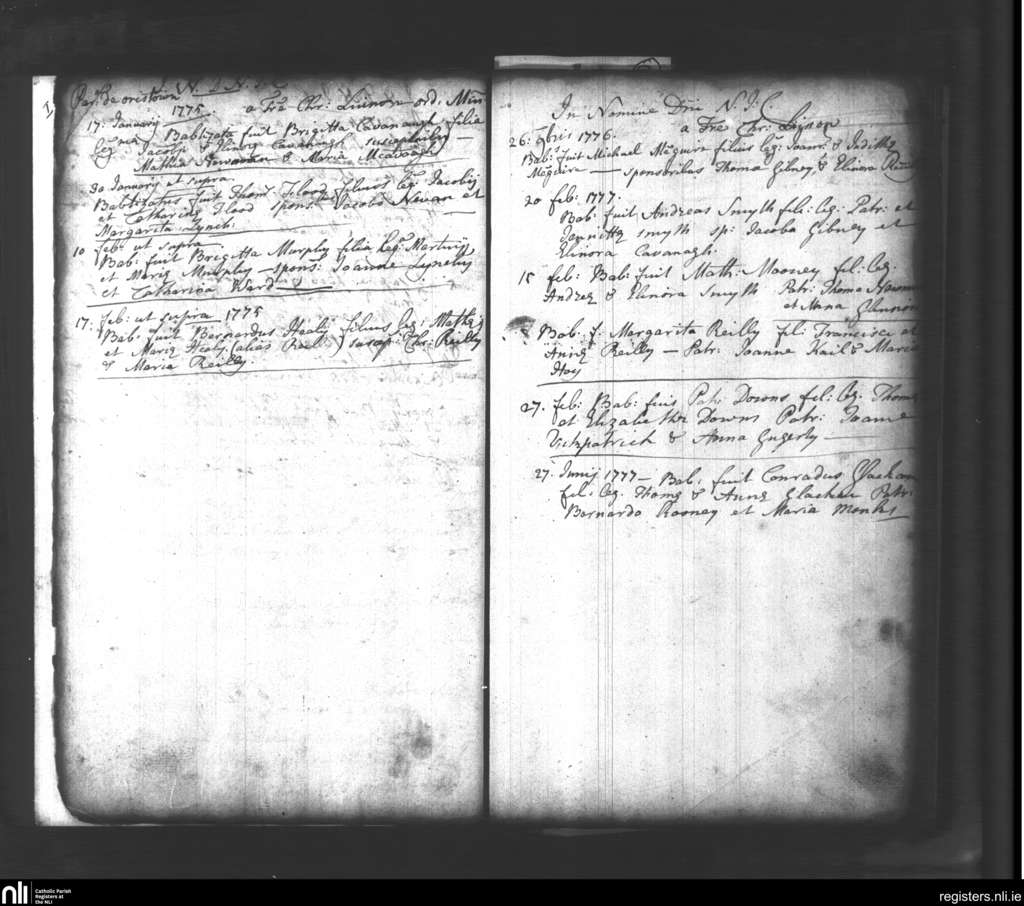 Par: de oristown
1775. a Fre Chr: Lininon ord: Min
17: Januarij Babtizata fuit Brigitta Cavanaugh filia
Leg: Jacobi & Elinorę Cavanaugh susceptoribus
Mathia & Maria
30 January et supra.
Babtizatus fuit Thom: Flood filius Leg: Jacobij
et Catharinę Flood spons: Jacobo Nevan et
Margarita Lynch.
10 feb: ut supra
Bab: fuit Brigitta Murphy filia Leg: Martinij
et Marię Murphy — spons: Joanne
et Catharina Ward
17: feb: ut supra 1775
Bab: fuit Bernardus Healij filius Leg: Mathęi
et Marię Healy alias suscep: Chr: Reilly
& Maria Reilly.
In Nomine Dni N. J. C.
a Fre Chr: Lijnon
26: 9bris 1776.
Bab: fuit Michael McGuire filius Leg: Joann: & Judithę
McGuire — sponsoribus Thoma Gibney & Elinora
20 feb: 1777.
Bab: fuit Andreas Smyth fil: Leg: Patr: et
Jennittę Smyth sp: Jacoba Gibney et
Elinora Cavanagh.
15 feb: Bab: fuit Math: Mooney fil: Leg:
Andreę & Elinora Smyth Patr: Thoma
et Nana
Bab: f: Margarita Reilly fil: Francisci et
Annę Reilly — Patr: Joanne Kail & Maria
Hoy
27. feb: Bab: fuit Pat: Downs fil: Leg. Thom
et Elizabethę Downs Patr: Joanne
Fitzpatrick & Anna Gugerly
27. Junij 1777 — Bab: fuit Conradus
fil: Leg. Thomę & Annę Glackan Patr:
Bernardo Rooney et Maria Monks
nli
Catholic Parish
Registers at
the NLI
registers.nli.ie